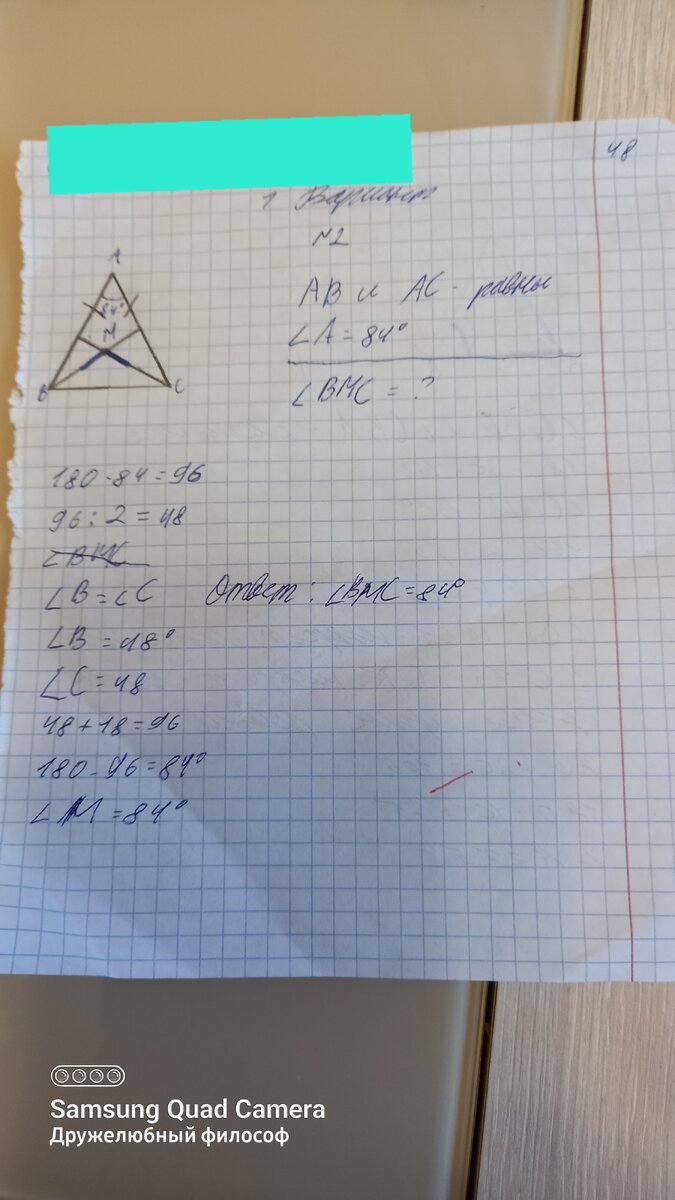 48
1 Вариант
N2
A
84°
M
B
C
AB и AC - равны
∠A = 84°
∠BMC = ?
180 - 84 = 96
96 : 2 = 48
∠BMC
∠B = ∠C Ответ: ∠BMC = 84°
∠B = 48°
∠C = 48
48 + 48 = 96
180 - 96 = 84°
∠M = 84°
Samsung Quad Camera
Дружелюбный философ